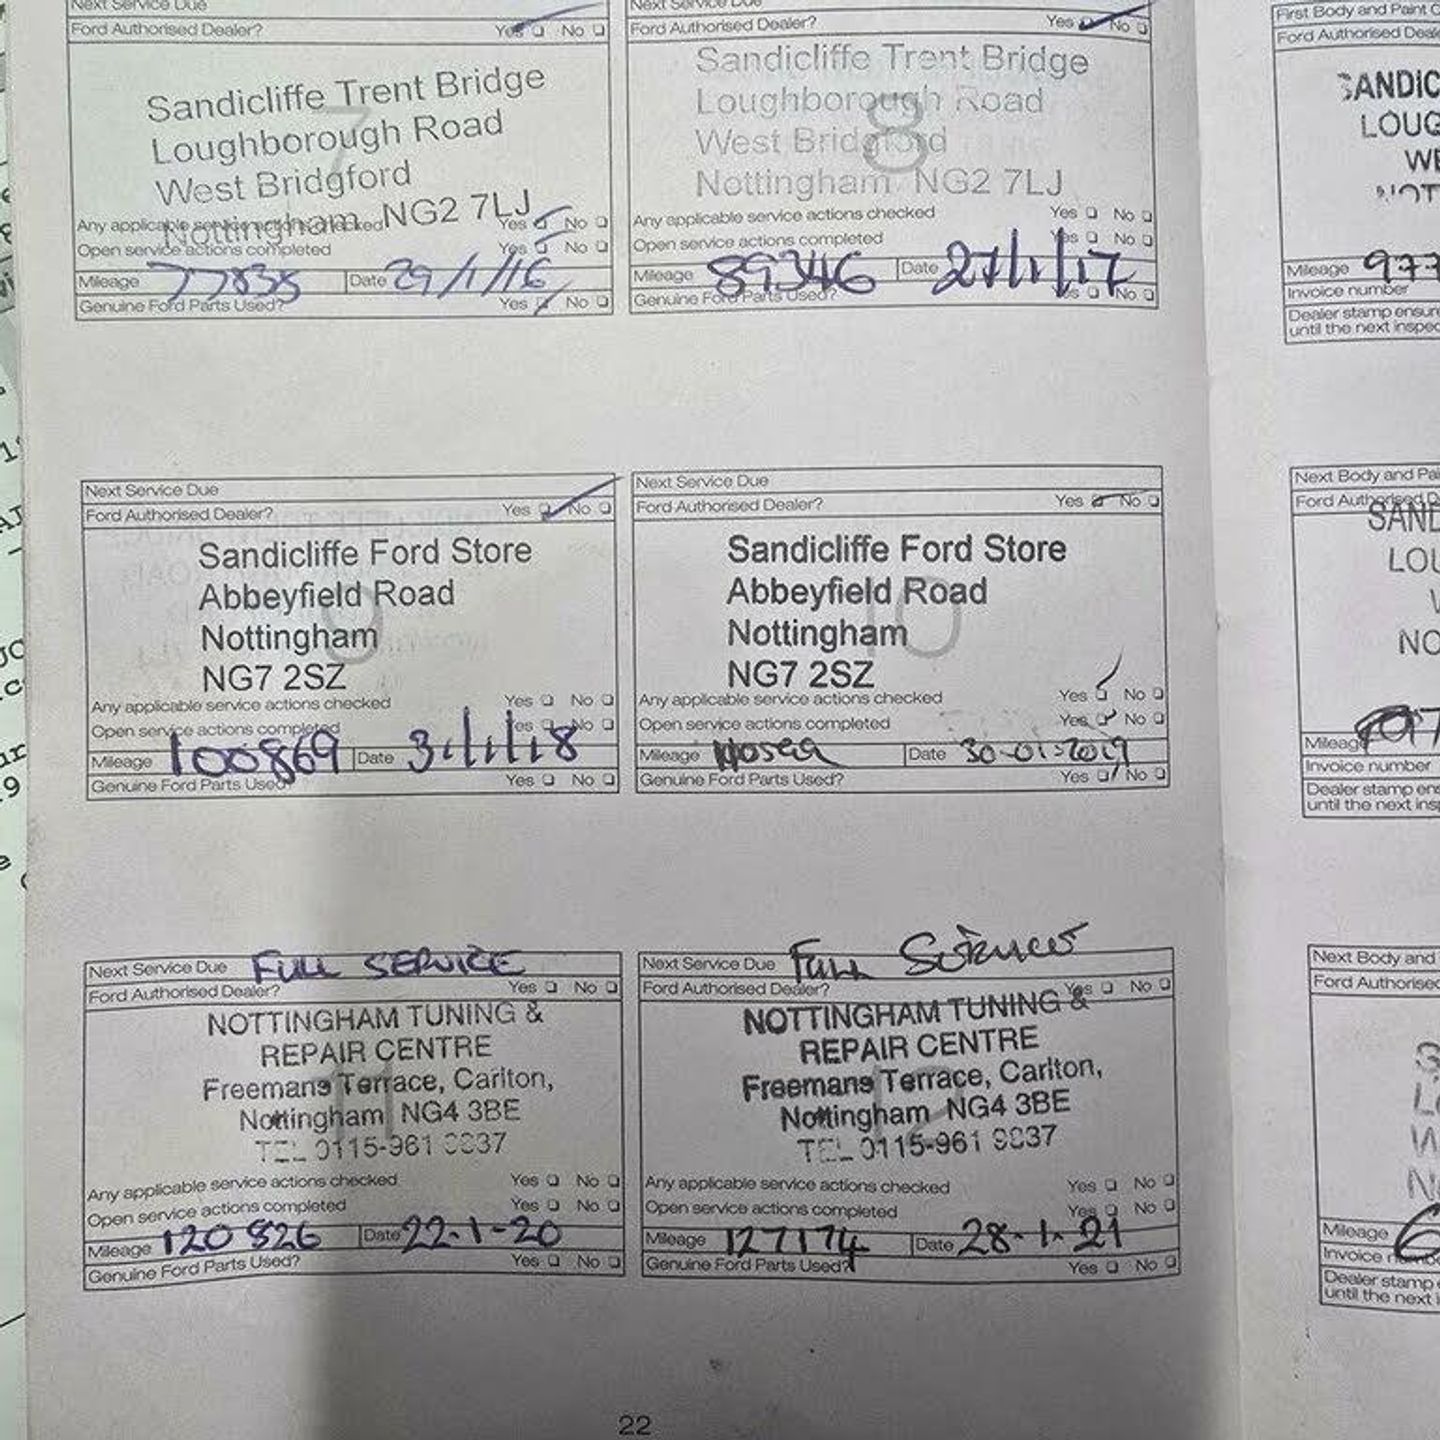 Next Service Due
Ford Authorised Dealer? Yes No
7
Sandicliffe Trent Bridge
Loughborough Road
West Bridgford
Nottingham NG2 7LJ
Any applicable service actions checked Yes No
Open service actions completed Yes No
Mileage 77835 Date 29/1/16
Genuine Ford Parts Used? Yes No
Next Service Due
Ford Authorised Dealer? Yes No
8
Sandicliffe Trent Bridge
Loughborough Road
West Bridgford
Nottingham NG2 7LJ
Any applicable service actions checked Yes No
Open service actions completed Yes No
Mileage 89346 Date 27/1/17
Genuine Ford Parts Used? Yes No
Next Service Due
Ford Authorised Dealer? Yes No
9
Sandicliffe Ford Store
Abbeyfield Road
Nottingham
NG7 2SZ
Any applicable service actions checked Yes No
Open service actions completed Yes No
Mileage 100869 Date 31/1/18
Genuine Ford Parts Used? Yes No
Next Service Due
Ford Authorised Dealer? Yes No
10
Sandicliffe Ford Store
Abbeyfield Road
Nottingham
NG7 2SZ
Any applicable service actions checked Yes No
Open service actions completed Yes No
Mileage Date 30-01-2019
Genuine Ford Parts Used? Yes No
Next Service Due FULL SERVICE
Ford Authorised Dealer? Yes No
11
NOTTINGHAM TUNING &
REPAIR CENTRE
Freemans Terrace, Carlton,
Nottingham NG4 3BE
TEL 0115-961
Any applicable service actions checked Yes No
Open service actions completed Yes No
Mileage 120826 Date 22-1-20
Genuine Ford Parts Used? Yes No
Next Service Due Full
Ford Authorised Dealer? Yes No
12
NOTTINGHAM TUNING &
REPAIR CENTRE
Freemans Terrace, Carlton,
Nottingham NG4 3BE
TEL 0115-961
Any applicable service actions checked Yes No
Open service actions completed Yes No
Mileage 127174 Date 28-1-21
Genuine Ford Parts Used? Yes No
22
First Body and Paint
Ford Authorised
SANDIC
LOUG
WE
NOT
Mileage 977
Invoice number
Dealer stamp ensur
until the next inspec
Next Body and Pai
Ford Authorised D
SAND
LOU
W
NO
Mileage
Invoice number
Dealer stamp ens
until the next insp
Next Body and
Ford Authorised
S
L
W
N
Mileage
Invoice number
Dealer stamp
until the next